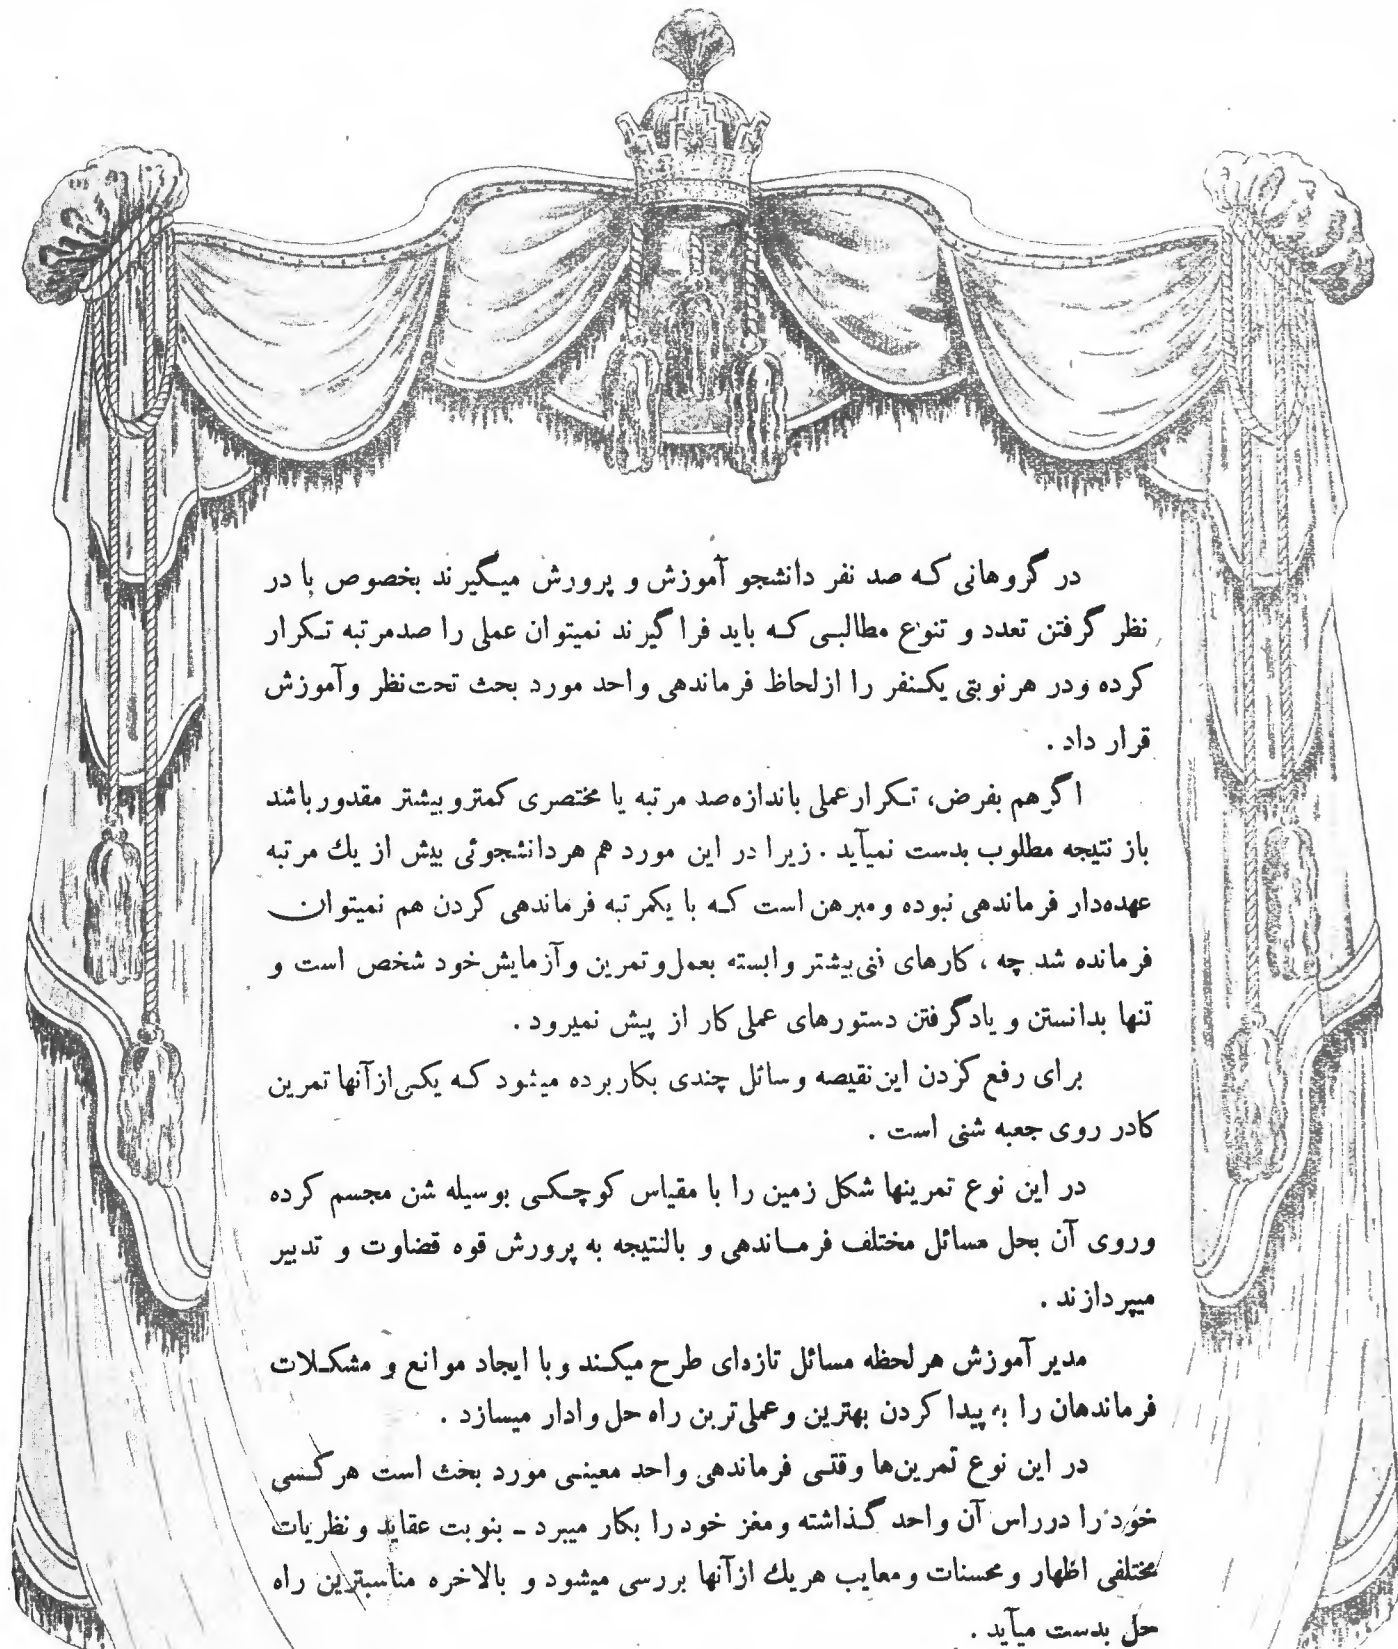 در گروهانی که صد نفر دانشجو آموزش و پرورش میگیرند بخصوص با در
نظر گرفتن تعدد و تنوع مطالبی که باید فرا گیرند نمیتوان عملی را صدمرتبه تکرار
کرده ودر هر نوبتی یکنفر را ازلحاظ فرماندهی واحد مورد بحث تحت‌نظر وآموزش
قرار داد .
اگر هم بفرض، تکرار عملی باندازه صد مرتبه یا مختصری کمتر و بیشتر مقدور باشد
باز نتیجه مطلوب بدست نمیآید . زیرا در این مورد هم هر دانشجوئی بیش از یك مرتبه
عهده‌دار فرماندهی نبوده و مبرهن است که با یکمرتبه فرماندهی کردن هم نمیتوان
فرمانده شد چه ، کارهای فنی بیشتر وابسته بعمل و تمرین وآزمایش خود شخص است و
تنها بدانستن و یادگرفتن دستورهای عملی کار از پیش نمیرود .
برای رفع کردن این نقیصه وسائل چندی بکار برده میشود که یکی ازآنها تمرین
کادر روی جعبه شنی است .
در این نوع تمرینها شکل زمین را با مقیاس کوچکی بوسیله شن مجسم کرده
وروی آن بحل مسائل مختلف فرماندهی و بالنتیجه به پرورش قوه قضاوت و تدبیر
میپردازند .
مدیر آموزش هر لحظه مسائل تازه‌ای طرح میکند و با ایجاد موانع و مشکلات
فرماندهان را به پیدا کردن بهترین وعملی‌ترین راه حل وادار میسازد .
در این نوع تمرین‌ها وقتی فرماندهی واحد معینی مورد بحث است هر کسی
خود را درراس آن واحد گذاشته ومغز خود را بکار میبرد - بنوبت عقاید ونظریات
مختلفی اظهار و محسنات ومعایب هریك ازآنها بررسی میشود و بالاخره مناسبترین راه
حل بدست میآید .